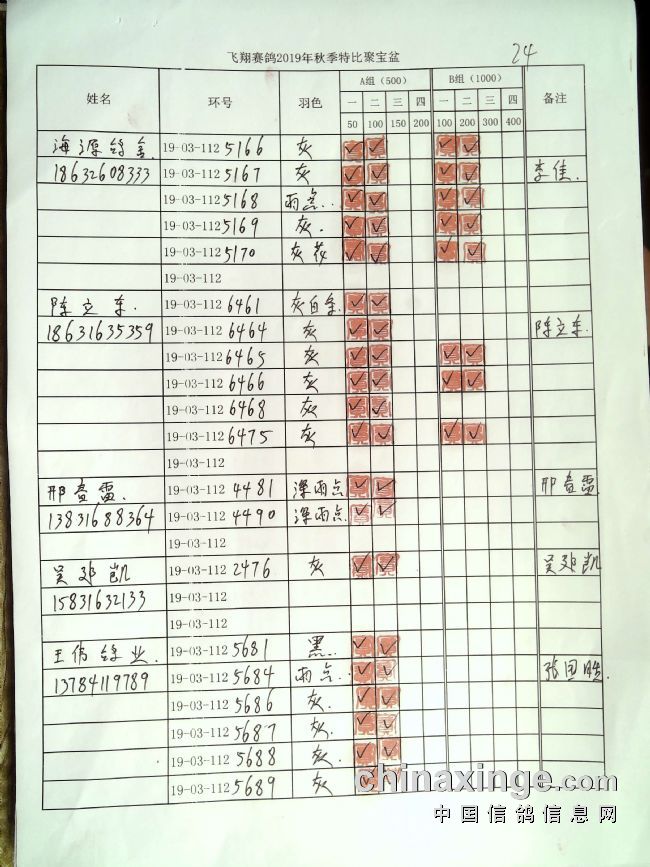 24
飞翔赛鸽2019年秋季特比聚宝盆
姓名 环号 羽色 A组（500） B组（1000） 备注
一 二 三 四 一 二 三 四
50 100 150 200 100 200 300 400
海源鸽舍 19-03-112 5166 灰 ✓ ✓ ✓ ✓
18632608333 19-03-112 5167 灰 ✓ ✓ ✓ ✓ 李佳
19-03-112 5168 雨点 ✓ ✓ ✓ ✓
19-03-112 5169 灰 ✓ ✓ ✓ ✓
19-03-112 5170 灰花 ✓ ✓ ✓ ✓
19-03-112
陈立东 19-03-112 6461 灰白条 ✓ ✓
18631635359 19-03-112 6464 灰 ✓ ✓ 陈立东
19-03-112 6465 灰 ✓ ✓ ✓ ✓
19-03-112 6466 灰 ✓ ✓ ✓ ✓
19-03-112 6468 灰 ✓ ✓
19-03-112 6475 灰 ✓ ✓ ✓ ✓
19-03-112
邢 雷 19-03-112 4481 深雨点 ✓ ✓ 邢 雷
13831688364 19-03-112 4490 深雨点 ✓ ✓
19-03-112
吴 凯 19-03-112 2476 灰 ✓ ✓ 吴 凯
15831632133 19-03-112
19-03-112
王伟鸽业 19-03-112 5681 黑 ✓ ✓
13784119789 19-03-112 5684 雨点 ✓ ✓ 张国胜
19-03-112 5686 灰 ✓ ✓
19-03-112 5687 灰 ✓ ✓
19-03-112 5688 灰 ✓ ✓
19-03-112 5689 灰 ✓ ✓
chinaxinge.com
中国信鸽信息网